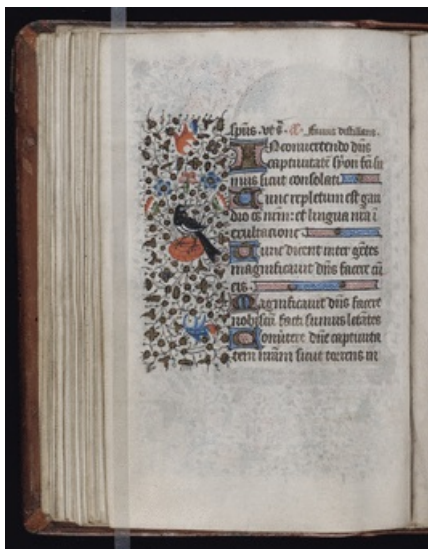 sp̄us . ve s̄ . a. favus distillans.
In convertendo dn̄s
captivitatē syon fc̄i su
mus sicut consolati
Tunc repletum est gau
dio os nr̄m: et lingua nr̄a ī
exultatione
Tunc dicent inter gētes
magnificavit dn̄s facere cū
eis
Magnificavit dn̄s facere
nobiscū facti sumus letātes
Convertere dn̄e captivita
tem nr̄am sicut torrens in